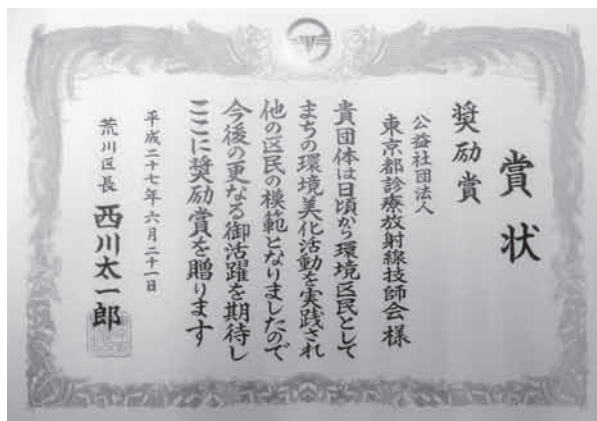 賞状
奨励賞
公益社団法人
東京都診療放射線技師会様
貴団体は日頃から環境区民として
まちの環境美化活動を実践され
他の区民の模範となりましたので
今後の更なる御活躍を期待し
ここに奨励賞を贈ります
平成二十七年六月二十一日
荒川区長 西川太一郎